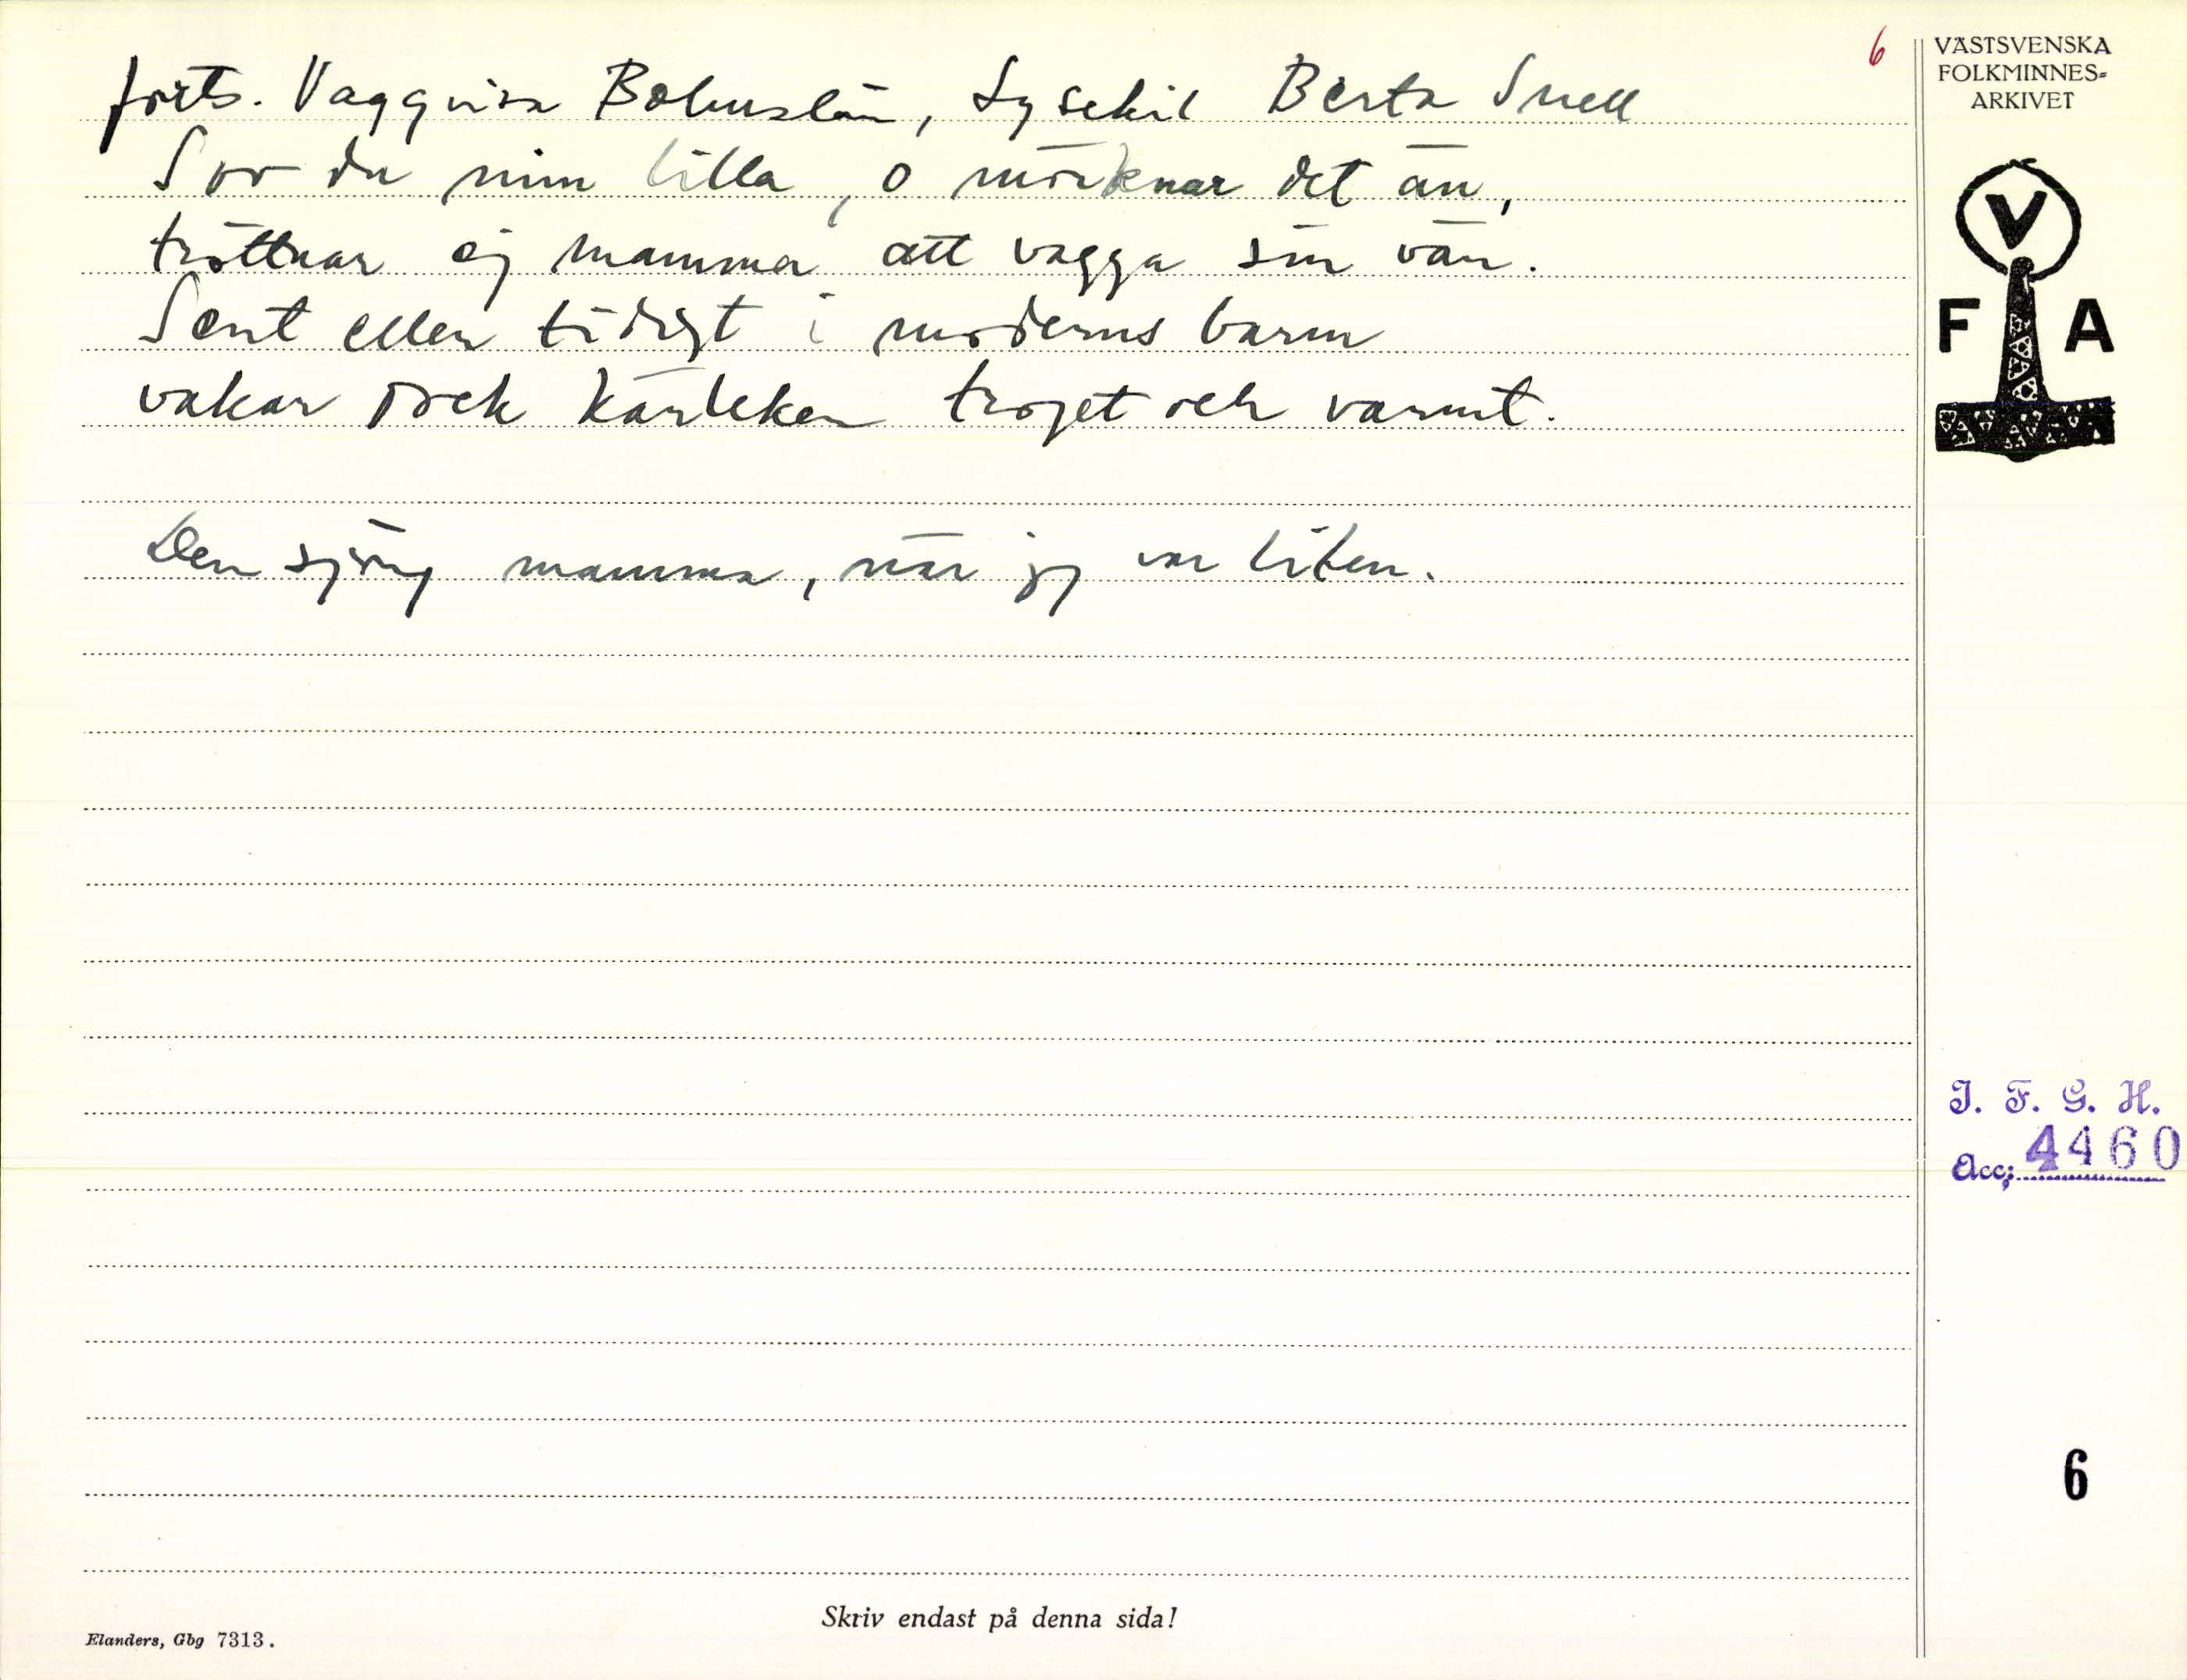 6
VÄSTSVENSKA
FOLKMINNES-
ARKIVET
forts. Vaggvisa Bohuslän, Lysekil Berta Snell
Sov du min lilla, o mörknar det än,
tröttnar ej mamma att vagga sin vän.
Sent eller tidigt i moderns barm
vakar dock kärleken troget och varmt.
Den sjöng mamma, när jag var liten.
V
F A
I. F. G. H.
Acc: 4460
6
Skriv endast på denna sida!
Elanders, Gbg 7313.